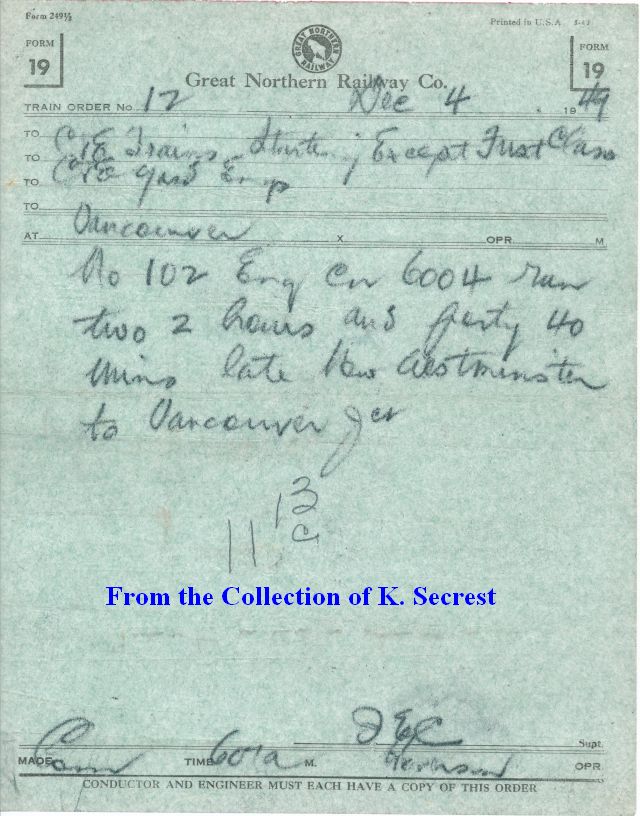 Form 249½
Printed in U.S.A 5-43
FORM 19
GREAT NORTHERN RAILWAY
FORM 19
Great Northern Railway Co.
TRAIN ORDER No. 12 Dec 4 1949
TO C&E Trains Starting Except First Class
TO C&E Yard Engs
TO
TO
AT Vancouver X OPR. M
No 102 Eng CN 6004 run
two 2 hours and forty 40
mins late New Westminster
to Vancouver Jct
13
11 C
From the Collection of K. Secrest
JEC Supt.
MADE Com TIME 601a M. OPR.
CONDUCTOR AND ENGINEER MUST EACH HAVE A COPY OF THIS ORDER